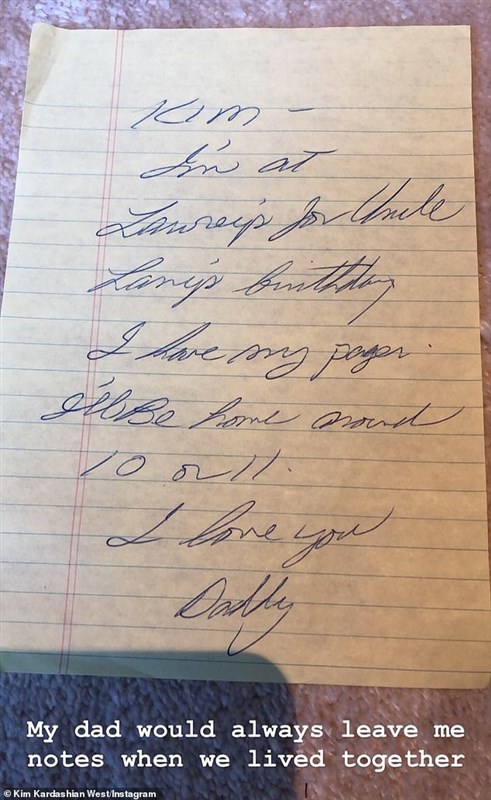 Kim -
I'm at
Lawrey's for Uncle
Larry's birthday
I have my pager.
I'll Be home around
10 or 11.
I love you
Daddy
My dad would always leave me
notes when we lived together
© Kim Kardashian West/Instagram